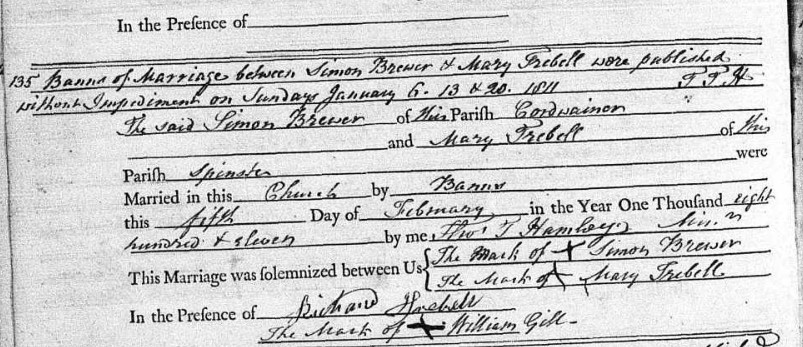 In the Presence of
135 Banns of Marriage between Simon Brewer & Mary Trebell were published
without Impediment on Sundays January 6. 13 & 20. 1811 T T H
The said Simon Brewer of this Parish Cordwainer
and Mary Trebell of this
Parish Spinster were
Married in this Church by Banns
this fifth Day of February in the Year One Thousand eight
hundred & eleven by me Thos. T Hamley Minr
This Marriage was solemnized between Us { The Mark of + Simon Brewer
The Mark of + Mary Trebell
In the Presence of Richard Trebell
The Mark of + William Gill